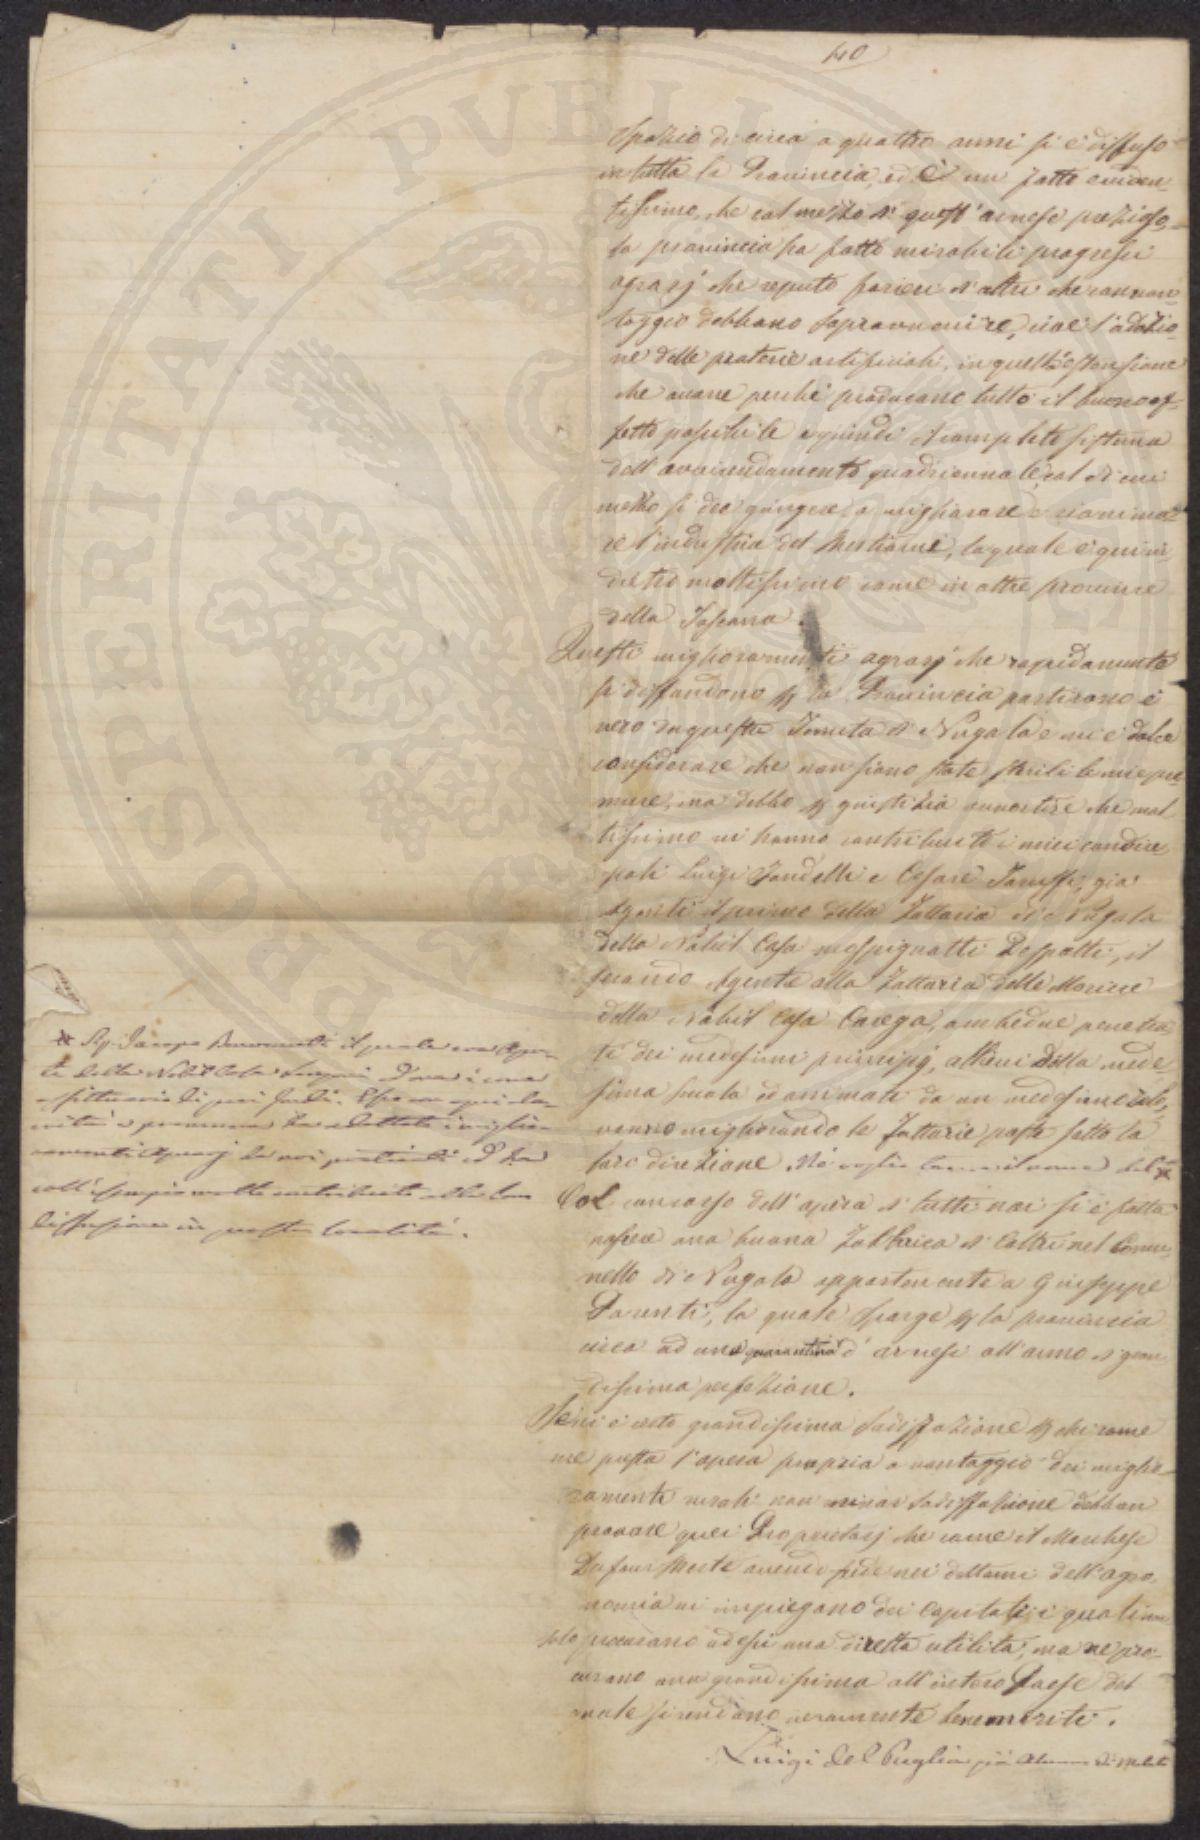 40
spazio di circa a quattro anni si è diffuso
in tutta la Provincia, ed è un fatto eviden-
tissimo, che col mezzo di quest'arnese prezioso,
la provincia ha fatto mirabili progressi
agrarj che reputo forieri d'altri che con van-
taggio debbano sopravvenire, cioè l'adozio-
ne delle praterie artificiali, in quell'estensione
che occorre perché producano tutto il buono ef-
fetto possibile e quindi il completo sistema
dell'avvicendamento quadriennale, col di cui
mezzo si dee giungere a migliorare e rianima-
re l'industria del Bestiame, la quale è qui in-
dietro moltissimo come in altre provincie
della Toscana.
Questi miglioramenti agrarj che rapidamente
si diffondono per la Provincia partirono è
vero da questa Tenuta di Nugola e mi è dolce
considerare che non siano state sterili le mie pre-
mure, ma debbo per giustizia avvertire che mol-
tissimo vi hanno contribuito i miei condisce-
poli Luigi Zandelli e Cesare Taruffi, già
Agenti il primo della Fattoria di Nugola
della Nobil Casa Despotti, il
secondo Agente alla Fattoria delle Moriere
della Nobil Casa Carega, ambedue penetra-
ti dei medesimi principj, allievi della mede-
sima scuola ed animati da un medesimo zelo,
vanno migliorando le Fattorie poste sotto la
loro direzione. Né voglio del *
Col concorso dell'opera di tutti noi si è fatta
nascere una buona Fabbrica di Coltri nel Comu-
nello di Nugola appartenente a Giuseppe
Parenti, la quale sparge per la provincia
circa ad una quarantina d'arnesi all'anno di gran-
dissima perfezione.
Se vi è certo grandissima sodisfazione per chi come
me presta l'opera propria a vantaggio dei miglio-
ramenti rurali non minor sodisfazione debban
provare quei Proprietarj che come il Marchese
avendo fede nei dettami dell'agro-
nomia vi impiegano dei Capitali, i quali non
solo procurano ad essi una diretta utilità, ma ne pro-
curano una grandissima all'intero Paese del
quale si rendono veramente benemeriti.
Luigi Del Puglia già Alunno di Meleto
* Sig. Jacopo il quale era Agen-
te della Nobil Casa ed ora è come
affittuario di poi fondi. Esso con ogni
e premura ha adottato i miglio-
ramenti Agrarj da noi praticati ed ha
coll'esempio molto contribuito alla loro
diffusione in questa località.